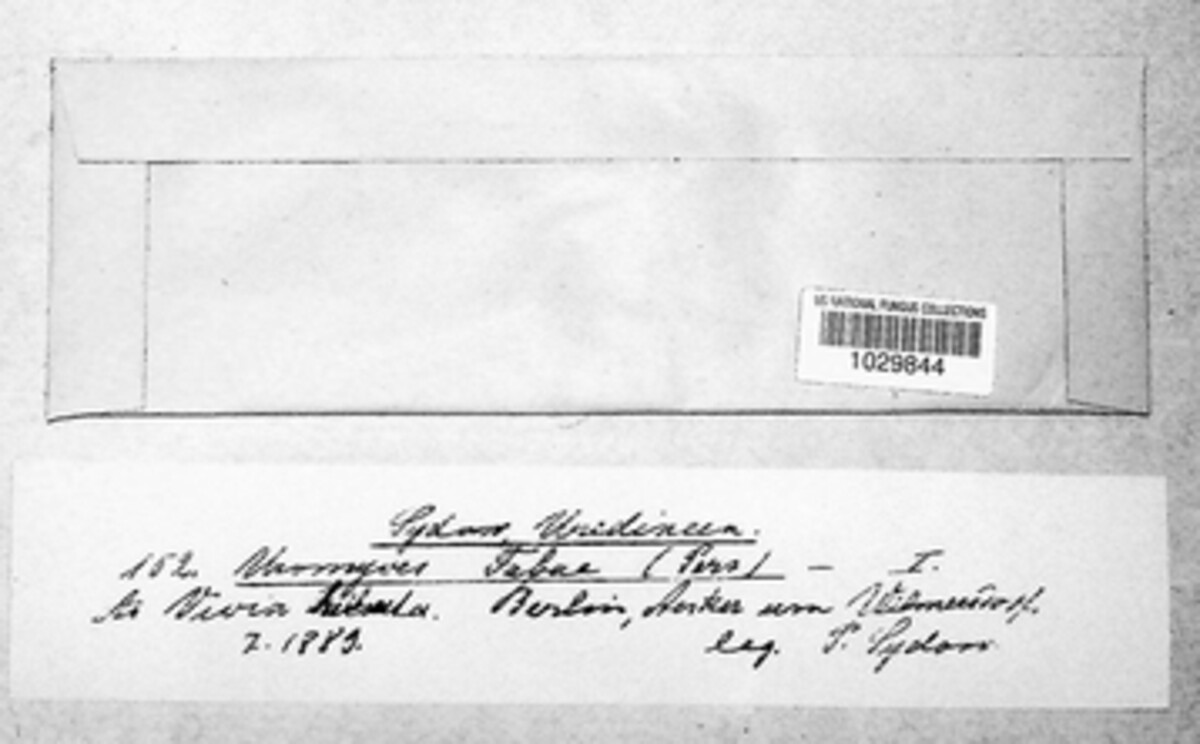 US NATIONAL FUNGUS COLLECTIONS
1029844
Sydow, Uredineen.
152. Uromyces Fabae (Pers) — I.
Vicia hirsuta. Berlin, Aecker um Wilmersdorf.
7. 1889. leg. P. Sydow